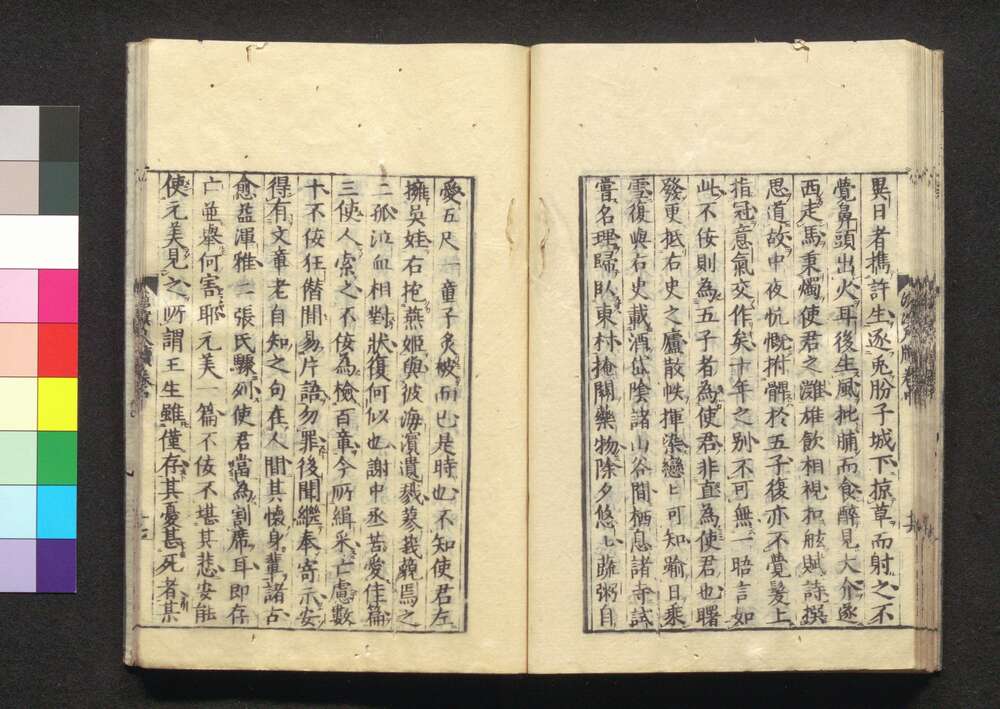 異日者攜許生逐兎肦子城下掠草而射之不
覺鼻頭出火耳後生風批脯而食醉見大介逐
西走馬秉燭使君之灘雄飲相視扣舷賦詩撰
思道故中夜忼慨拊髀於五子復亦不覺髮上
指冠意氣交作矣十年之别不可無一晤言如
此不佞則為五子者為使君非直為使君也曙
發更抵右史之廬散帙揮染戀〻可知踰日乘
雪復與右史載酒岱陰諸山谷間栖息諸寺試
嘗名理歸臥東村掩關藥物除夕悠〻蔬粥自
愛五尺一童子炙 而已是時也不知使君左
擁吴娃右抱燕姬與彼海濱遺 蓼莪 焉之
二孤泣血相對狀復何似也謝中丞苦愛住篇
三使人索之不佞為檢百章今所緝采亡慮數
十不佞狂僭開易片語勿罪後聞繼奉寄示安
得有文章老自知之句在人間其懷身輩諸占
愈益渾雅二張氏驟列使君當為割席耳即存
亡並舉何害耶元美一篇不佞不堪其悲安能
使元美見之所謂王生雖僅存其憂甚死者某